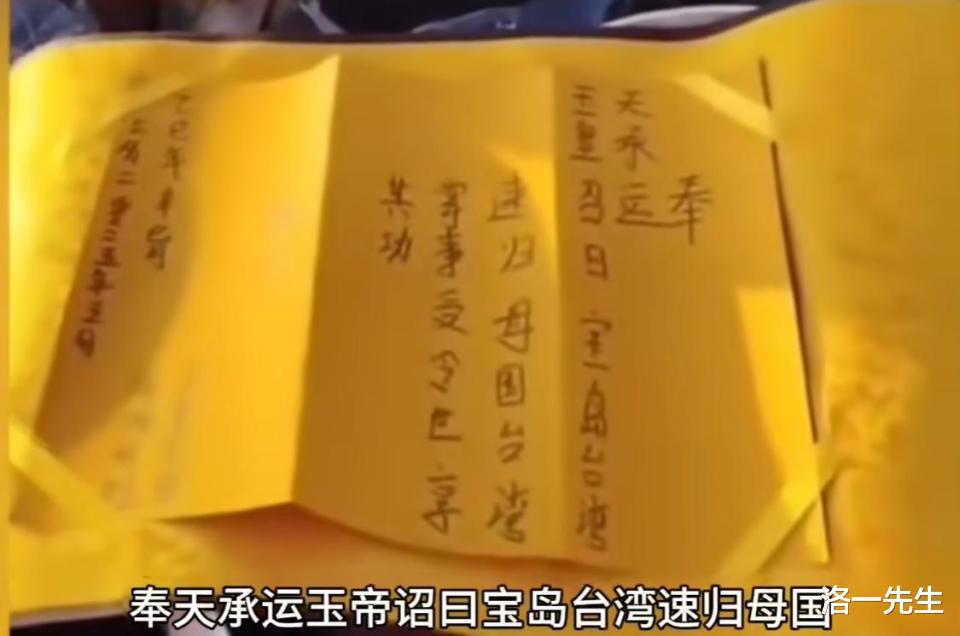 奉
天承运
玉皇召曰宝岛台湾
速归母国台湾
事受令世享
其功
乙巳年
二零二五年三月
奉天承运玉帝诏曰宝岛台湾速归母国
洛一先生